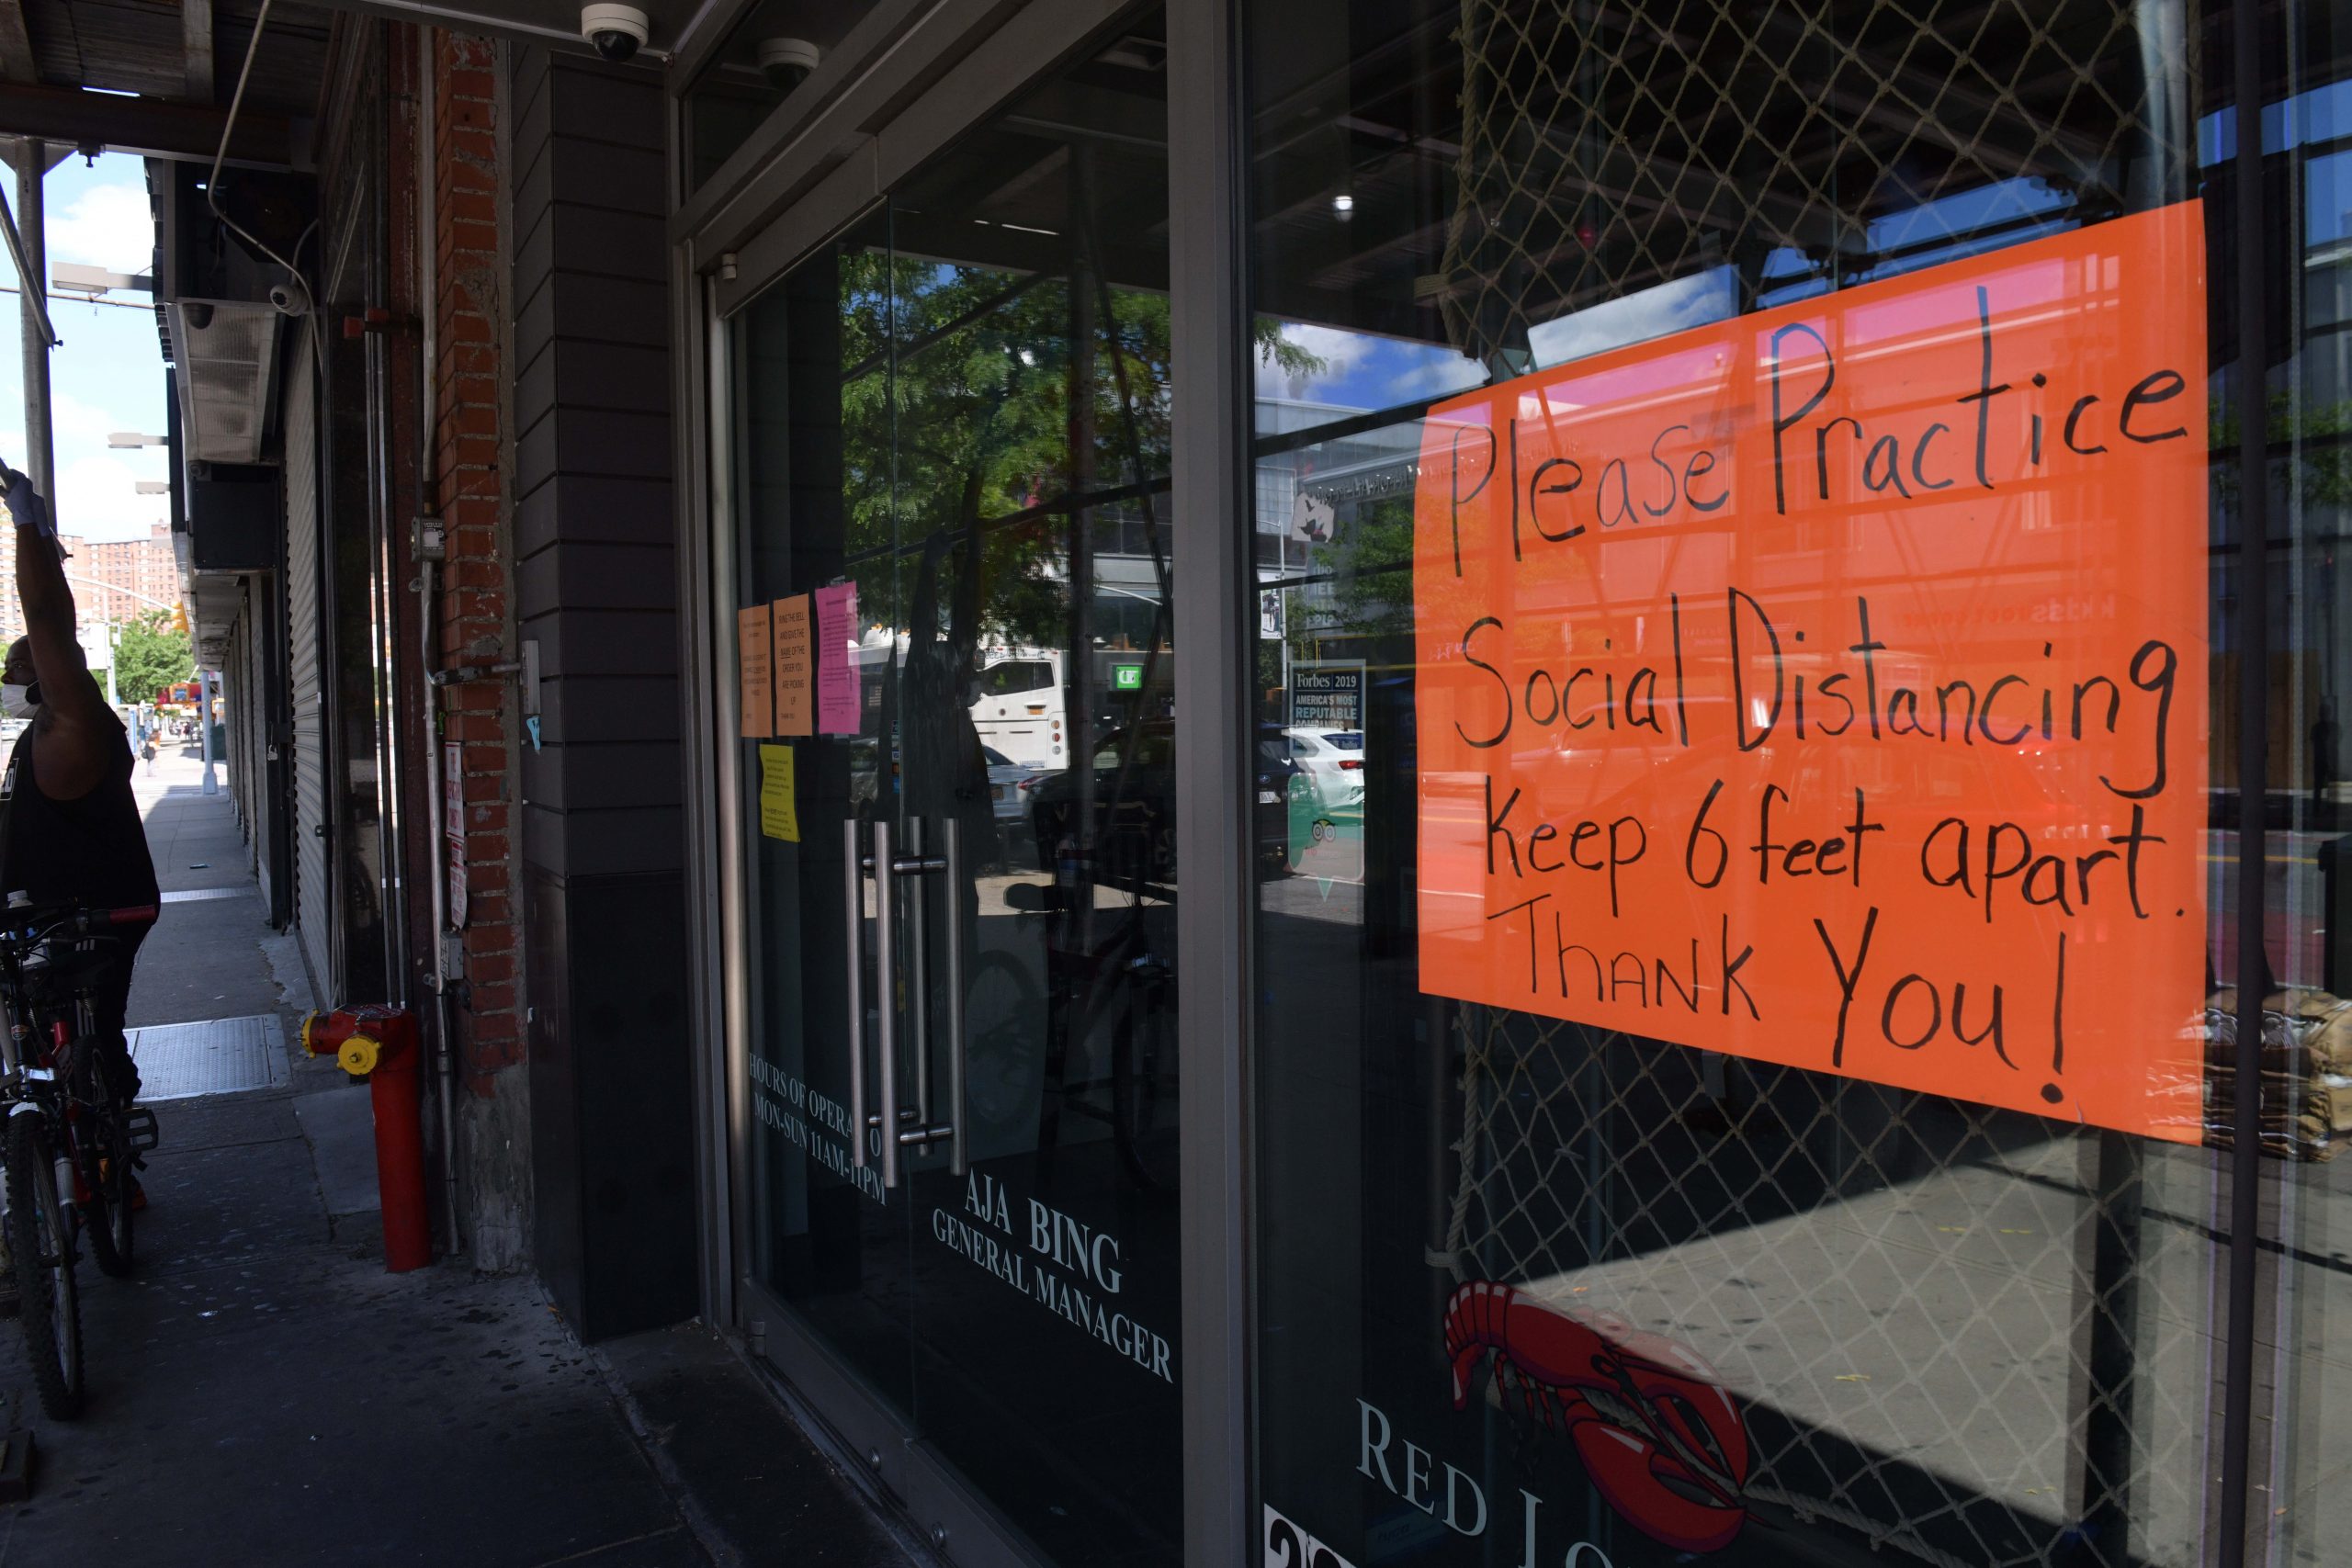 Please Practice
Social Distancing
Keep 6 feet apart.
Thank You!
RING THE BELL
AND GIVE THE
NAME OF THE
ORDER YOU
ARE PICKING
UP
Forbes 2019
AMERICA'S MOST
REPUTABLE
COMPANIES
HOURS OF OPERA O
MON-SUN 11AM-11PM
AJA BING
GENERAL MANAGER
RED LO